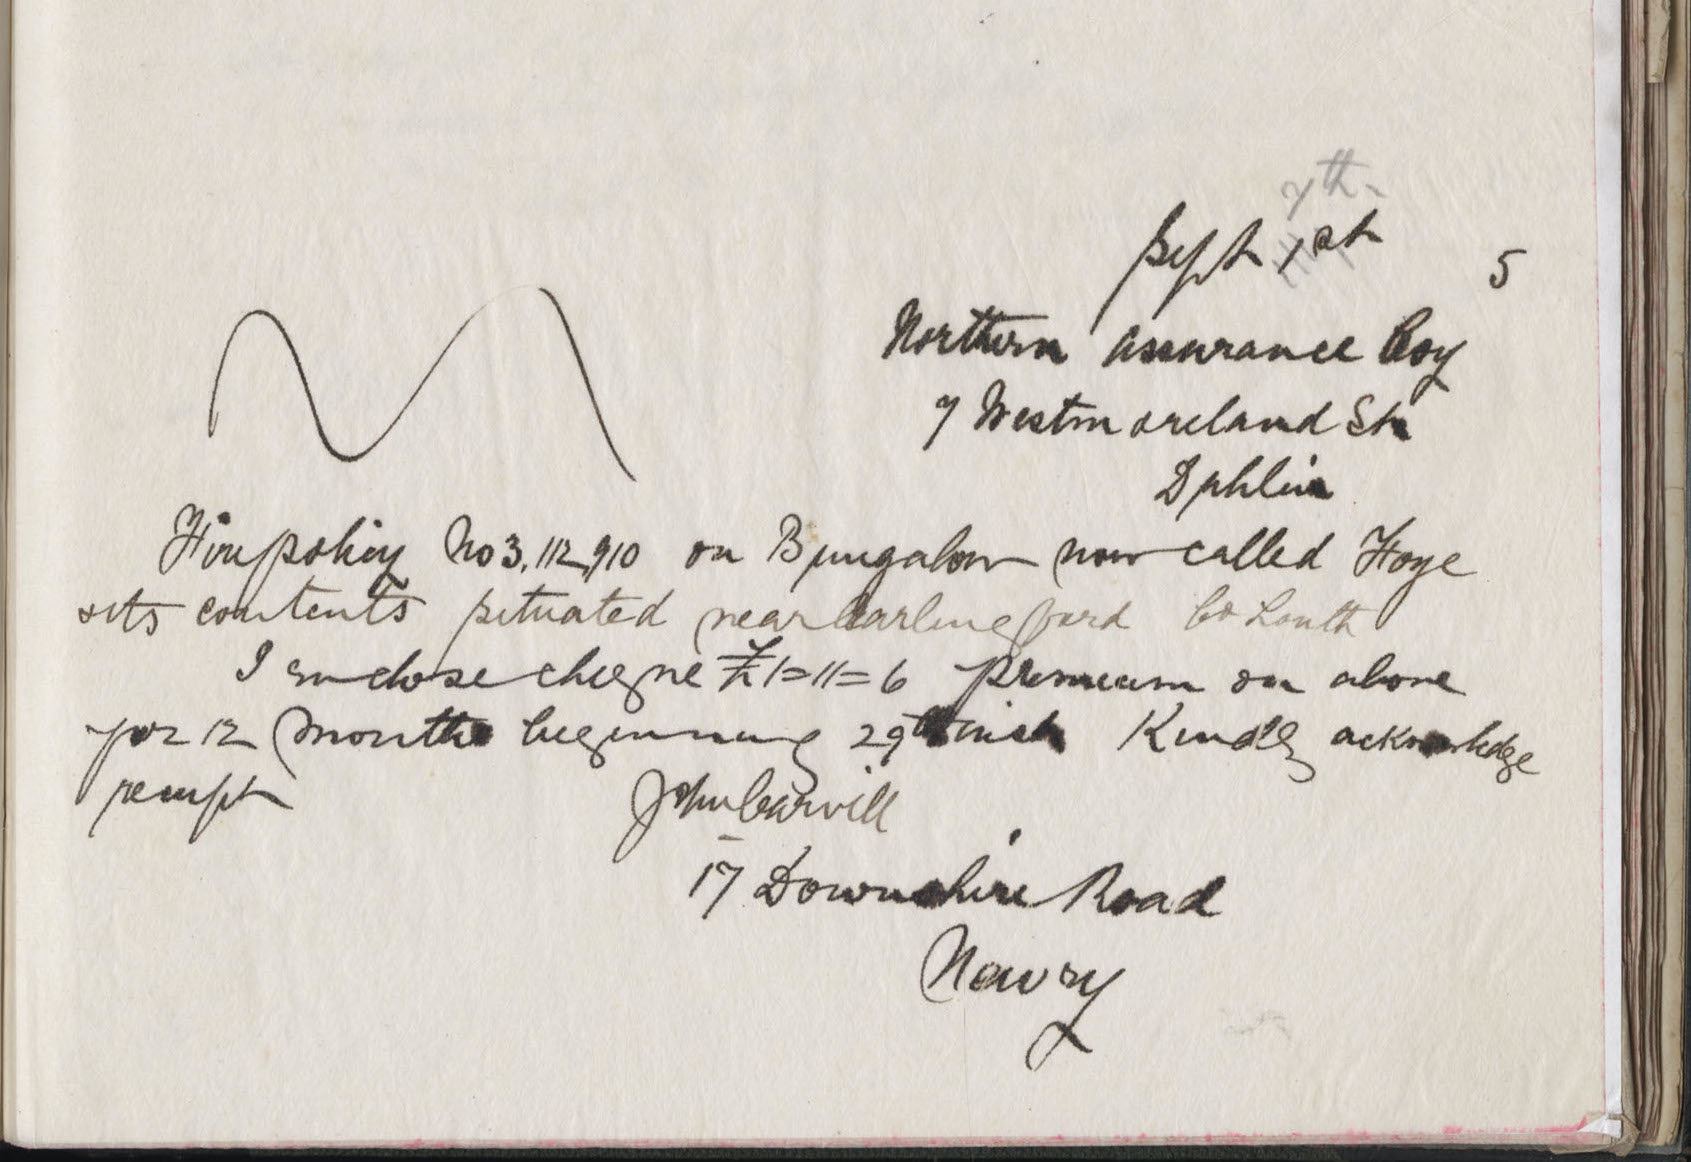 7th
Sept 1st 5
Northern Assurance Coy
7 Westmoreland St
Dublin
Fire policy No 3,112,910 on Bungalow now called
& its contents situated near Carlingford Co Louth
I enclose cheque £1=11=6 premium on above
for 12 months beginning 29th inst Kindly acknowledge
receipt John Carvill
17 Downshire Road
Newry